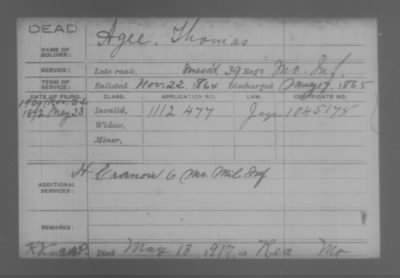 DEAD
NAME OF SOLDIER: Agee, Thomas
SERVICE: Late rank, 39 Mo. Inf.
TERM OF SERVICE: Enlisted Nov. 22, 1864 Discharged May 19, 1865
DATE OF FILING. CLASS. APPLICATION NO. LAW. CERTIFICATE NO.
1892 May 23 Invalid, 1112 477 1045175
Widow,
Minor,
ADDITIONAL SERVICES: H 6 Mo. Mil. Inf
REMARKS:
Died May 13, 1917, at Rea Mo